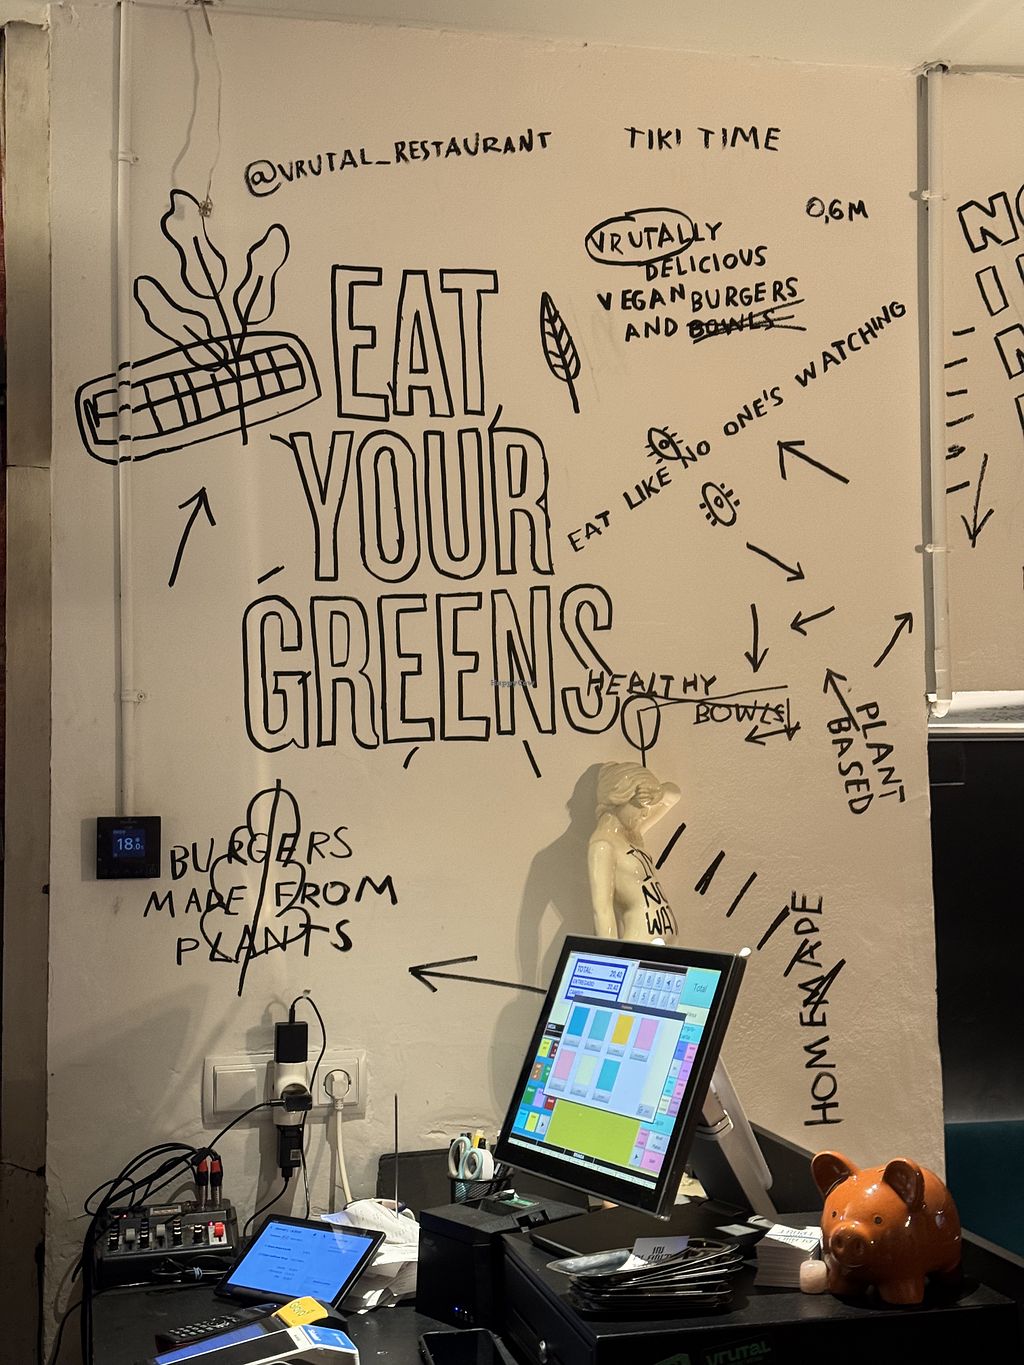 @VRUTAL_RESTAURANT
TIKI TIME
0,6M
VRUTALLY
DELICIOUS
VEGAN BURGERS
AND BOWLS
EAT
YOUR
GREENS
EAT LIKE NO ONE'S WATCHING
HEALTHY
BOWLS
PLANT
BASED
BURGERS
MADE FROM
PLANTS
HOMEMADE
NO
WAY
18.0
TOTAL:
Total
VRUTAL
HappyCow